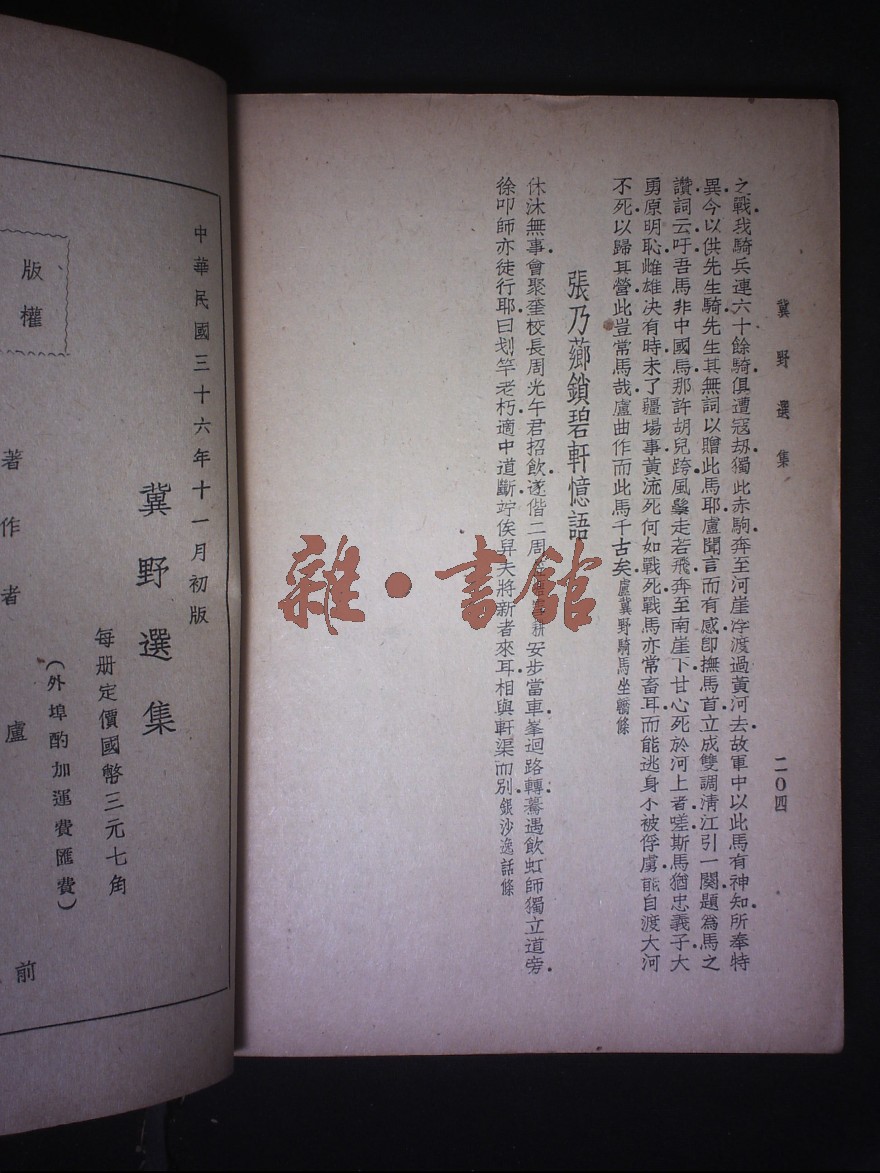 冀野選集
二〇四
之戰我騎兵連六十餘騎俱遭寇刼獨此赤駒奔至河崖浮渡過黃河去故軍中以此馬有神知所奉特
異今以供先生騎先生其無詞以贈此馬耶盧聞言而有感卽撫馬首立成雙調淸江引一闋題爲馬之
讚詞云吁吾馬非中國馬那許胡兒跨風鬃走若飛奔至南崖下甘心死於河上者嗟斯馬猶忠義子大
勇原明恥雌雄决有時未了疆場事黃流死何如戰死戰馬亦常畜耳而能逃身不被俘虜能自渡大河
不死以歸其營此豈常馬哉盧曲作而此馬千古矣盧冀野騎馬坐轎條
張乃薌鎖碧軒憶語
休沐無事會聚奎校長周光午君招飲遂偕二周 耕安步當車峯迴路轉驀遇飲虹師獨立道旁
徐叩師亦徒行耶曰划竿老朽適中道斷竚俟舁夫將新者來耳相與軒渠而別銀沙逸話條
雜·書館
中華民國三十六年十一月初版
冀野選集
每册定價國幣三元七角
(外埠酌加運費匯費)
著作者 盧 前
版權